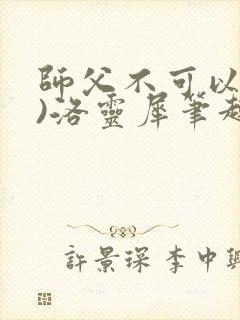 師父不可以
)洛靈犀筆趣
許景琛 李中興